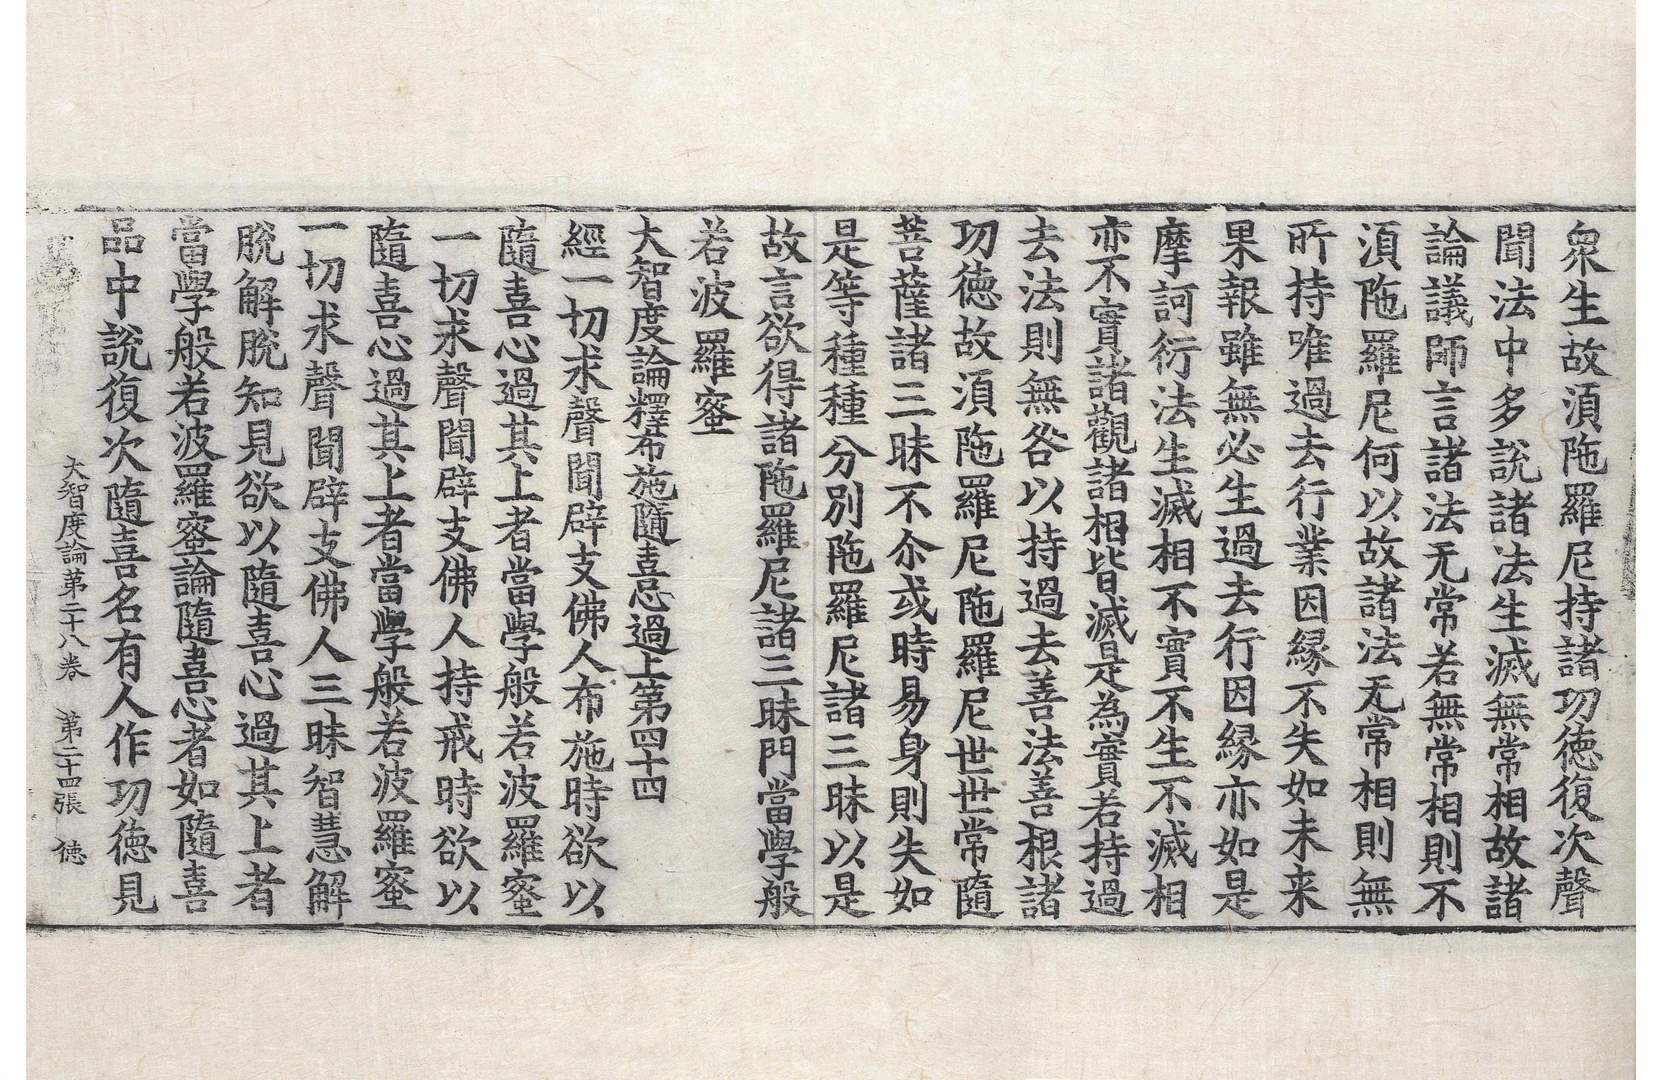 衆生故須陁羅尼持諸功德復次聲
聞法中多說諸法生滅無常相故諸
論議師言諸法无常若無常相則不
須陁羅尼何以故諸法无常相則無
所持唯過去行業因縁不失如未来
果報雖無必生過去行因縁亦如是
摩訶衍法生滅相不實不生不滅相
亦不實諸觀諸相皆滅是為實若持過
去法則無咎以持過去善法善根諸
功德故須陁羅尼陁羅尼世世常隨
菩薩諸三昧不尒或時易身則失如
是等種種分別陁羅尼諸三昧以是
故言欲得諸陁羅尼諸三昧門當學般
若波羅蜜
大智度論釋布施隨喜心過上第四十四
經一切求聲聞辟支佛人布施時欲以
隨喜心過其上者當學般若波羅蜜
一切求聲聞辟支佛人持戒時欲以
隨喜心過其上者當學般若波羅蜜
一切求聲聞辟支佛人三昧智慧解
脫解脫知見欲以隨喜心過其上者
當學般若波羅蜜論隨喜心者如隨喜
品中說復次隨喜名有人作功德見
大智度論第二十八卷 第二十四張 德